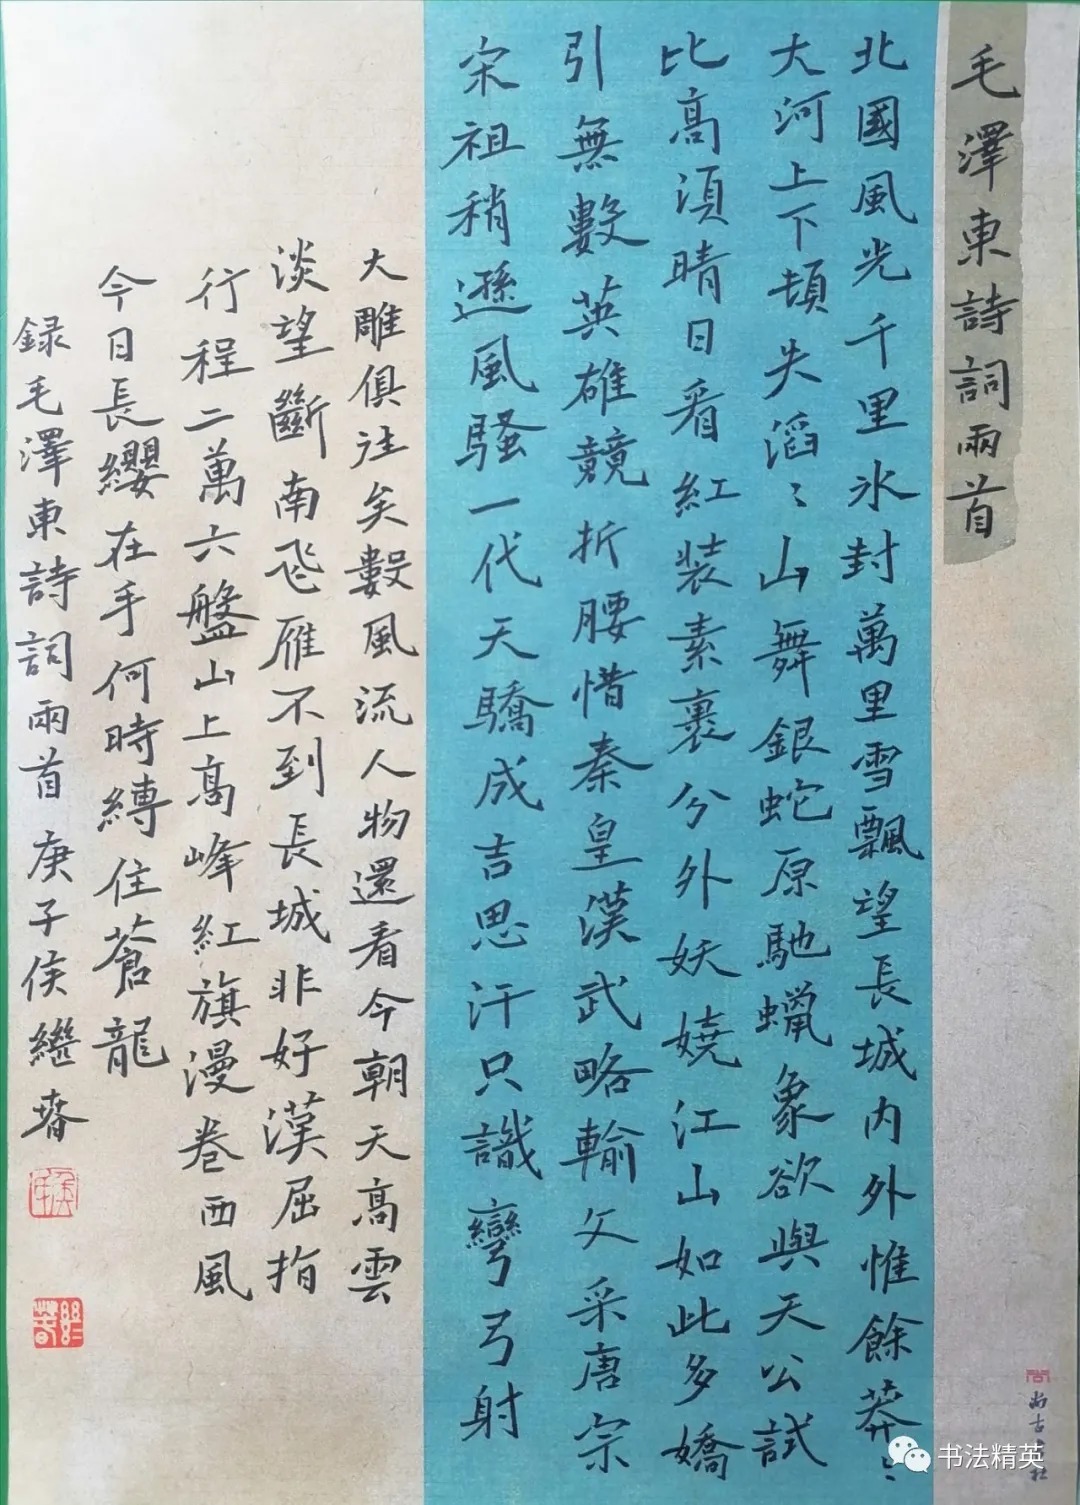 毛澤東詩詞兩首
北國風光千里氷封萬里雪飄望長城内外惟餘莽〻
大河上下頓失滔〻山舞銀蛇原馳蠟象欲與天公試
比高須晴日看紅装素裹分外妖嬈江山如此多嬌
引無數英雄競折腰惜秦皇漢武略輸文采唐宗
宋祖稍遜風騷一代天驕成吉思汗只識彎弓射
大雕俱往矣數風流人物還看今朝天高雲
淡望斷南飞雁不到長城非好漢屈指
行程二萬六盤山上高峰紅旗漫卷西風
今日長纓在手何時縛住蒼龍
録毛澤東詩詞兩首庚子侯繼春
尚古
书法精英